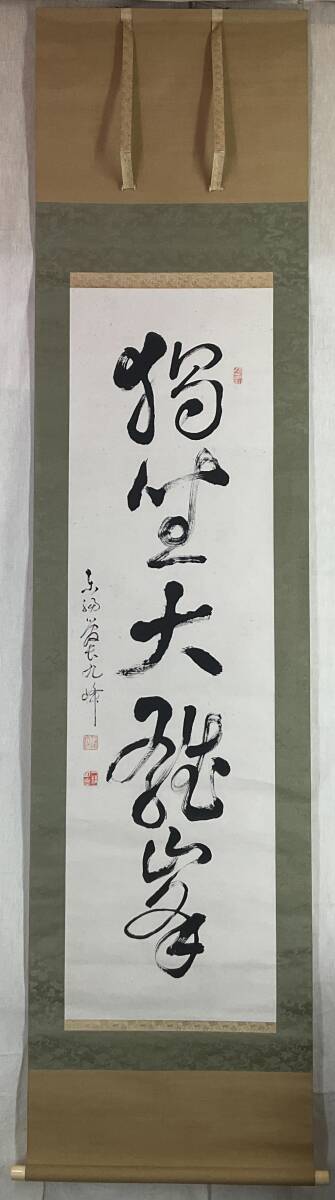 獨坐大雄峯
東福慶長九峰